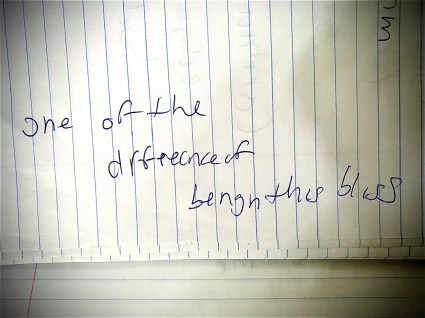 one of the
drffrecnce of
bengn this bluss